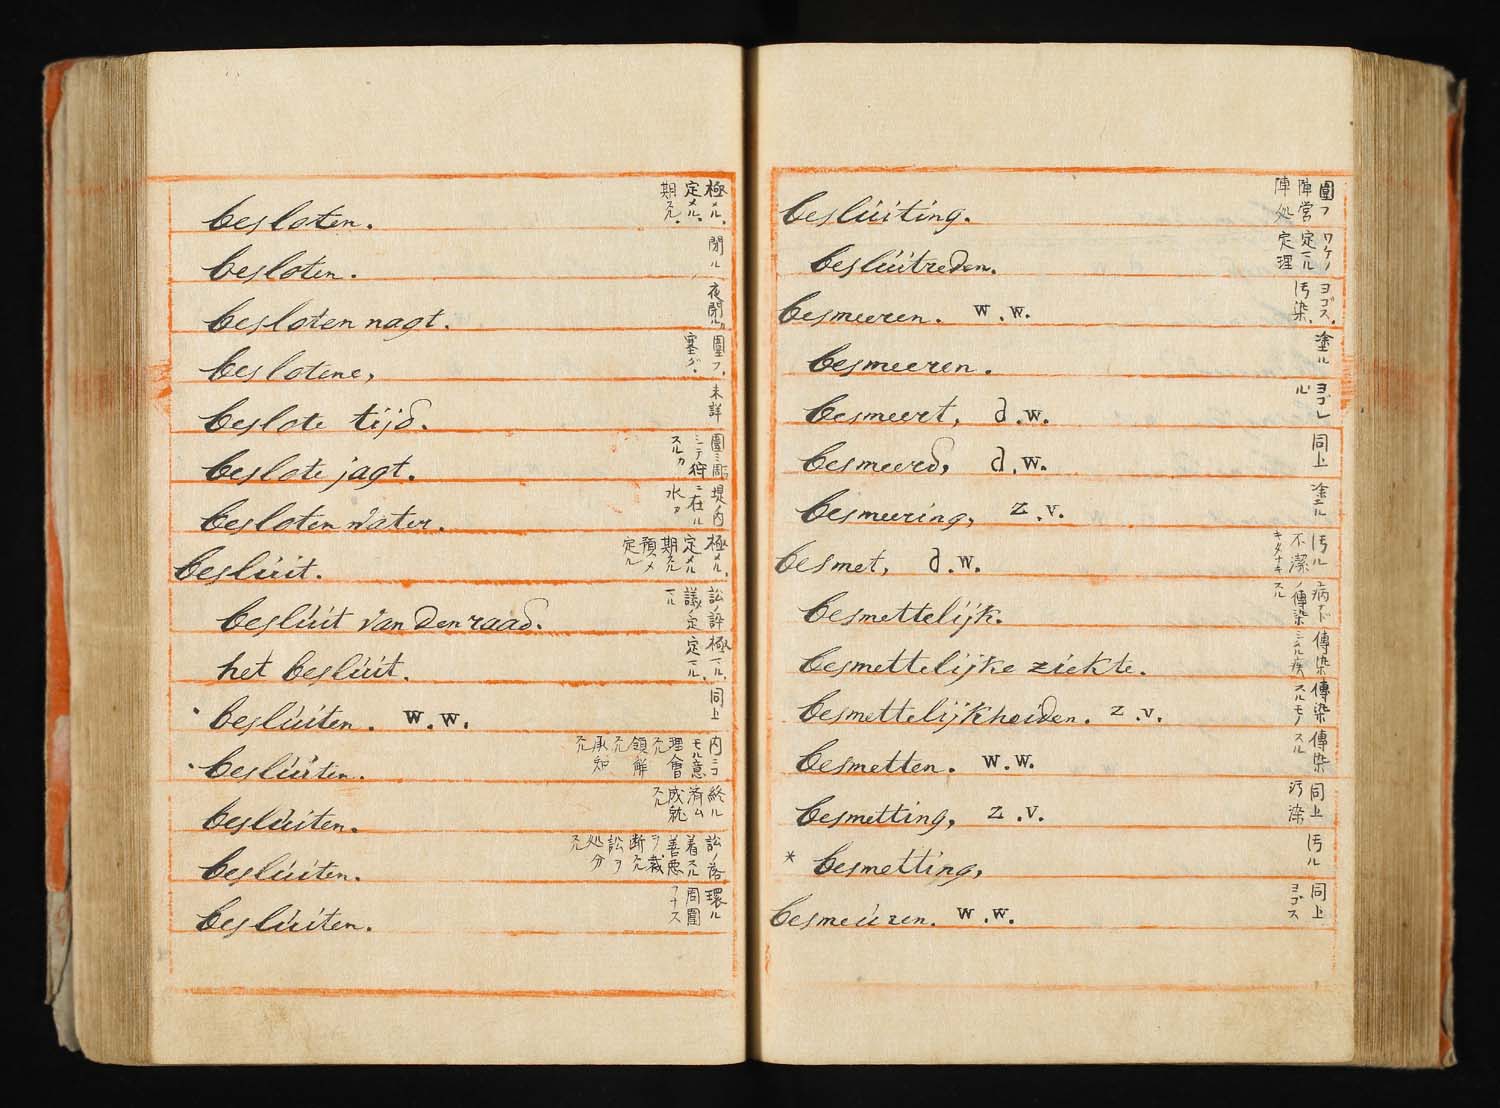 besloten. 極メル. 定メル. 期スル.
besloten. 閉ル
besloten nagt. 夜閉ル
beslotene, 圍フ. 塞グ.
beslote tijd. 未詳
beslote jagt. 狩
besloten water. 堤ノ内ニ在ル水カ
beslúit. 極メル. 定メル 期スル 預メ定ル
beslúit van den raad. 訟ノ評議ノ定
het beslúit. 極ル. 定ル.
beslúiten. w.w. 同上
beslúiten. 内ニコモル 意 理會スル 領解スル 承知スル
beslúiten. 終ル 済ム 成就スル
beslúiten. 訟ノ落着スル 善悪ヲ裁断スル 訟ヲ処分スル
beslúiten. 環ル 周圍ヲナス
beslúiting. 圍フ 陣営
beslúitreden. 定 定理
besmeeren. w.w. ヨゴス. 汚染.
besmeeren. 塗ル
besmeert, d.w. ヨゴレル
besmeerd, d.w. 同上
besmeering, z.v. 塗
besmet, d.w. 汚ル 不潔 キタナキ
besmettelijk. 病ナドノ傳染スル
besmettelijke ziekte. 傳染 疾
besmettelijkheiden. z.v. 傳染スルモノ
besmetten. w.w. 傳染スル
besmetting, z.v. 同上 汚染
* besmetting, 汚ル
besmeúren. w.w. 同上 ヨゴス